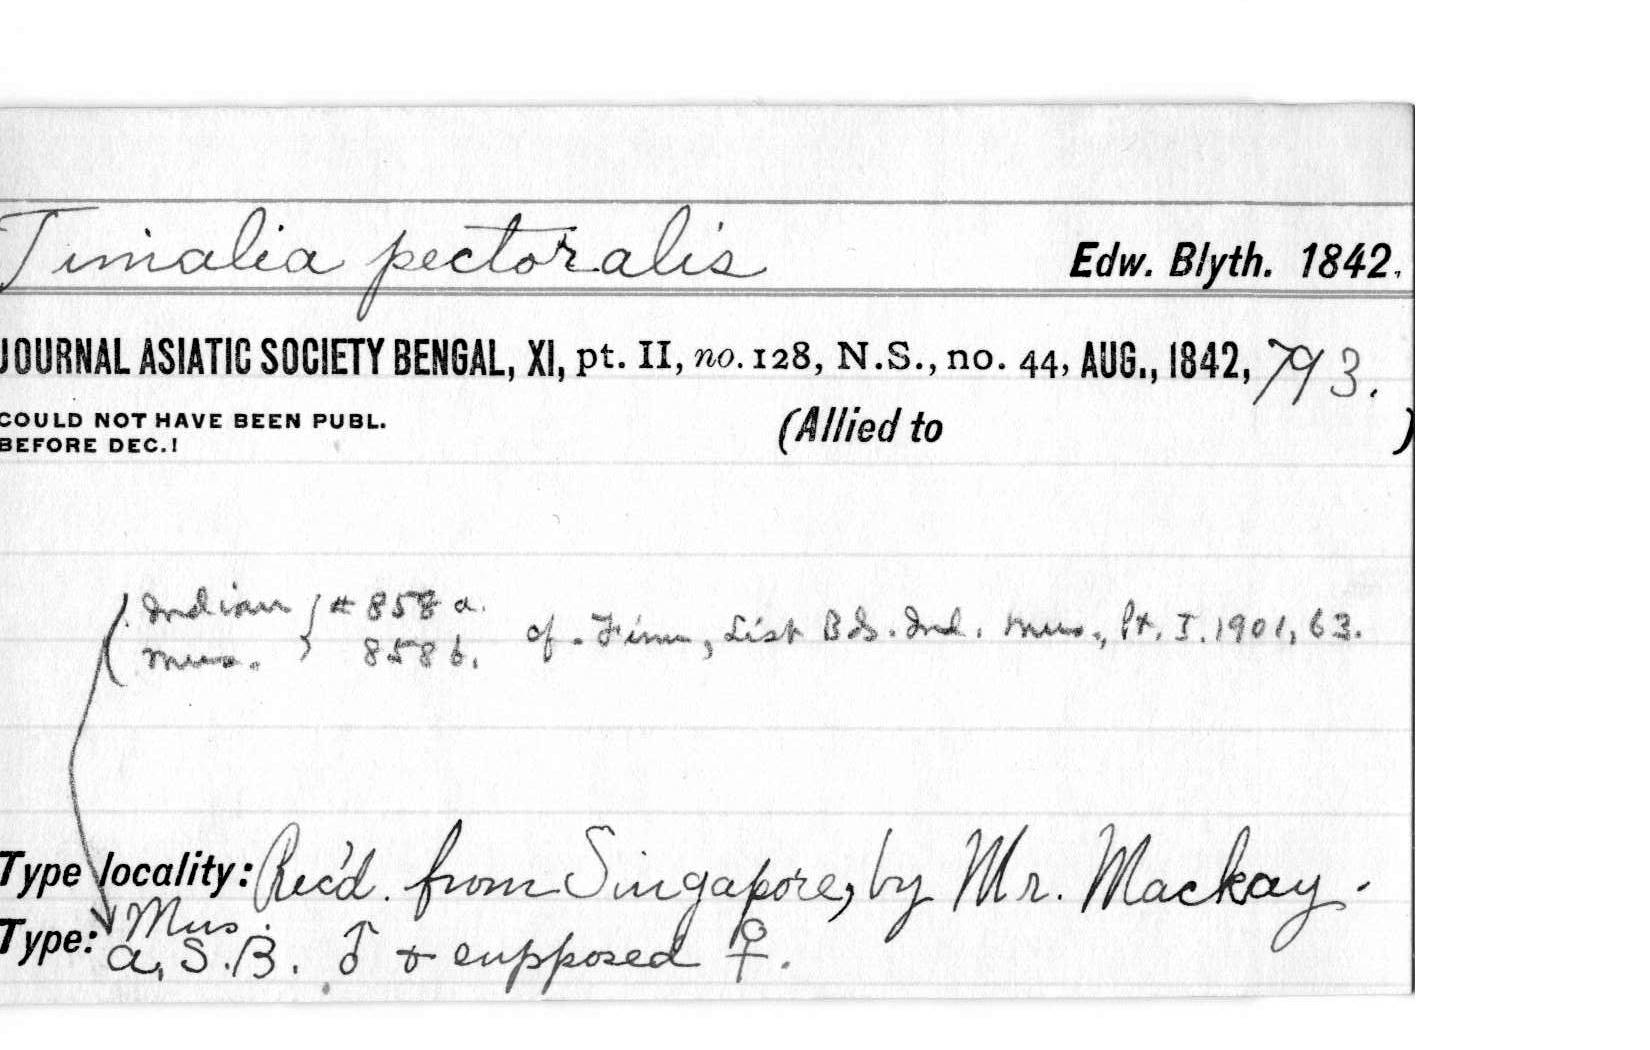 Timalia pectoralis Edw. Blyth. 1842.
JOURNAL ASIATIC SOCIETY BENGAL, XI, pt. II, no. 128, N.S., no. 44, AUG., 1842, 793.
COULD NOT HAVE BEEN PUBL. (Allied to )
BEFORE DEC.!
(Indian } # 858 a. cf. Finn, List Bds. Ind. Mus., Pt. I. 1901, 63.
Mus. } 858 b.
Type locality: Rec'd. from Singapore, by Mr. Mackay.
Mus.
Type: A. S. B. ♂ + supposed ♀.